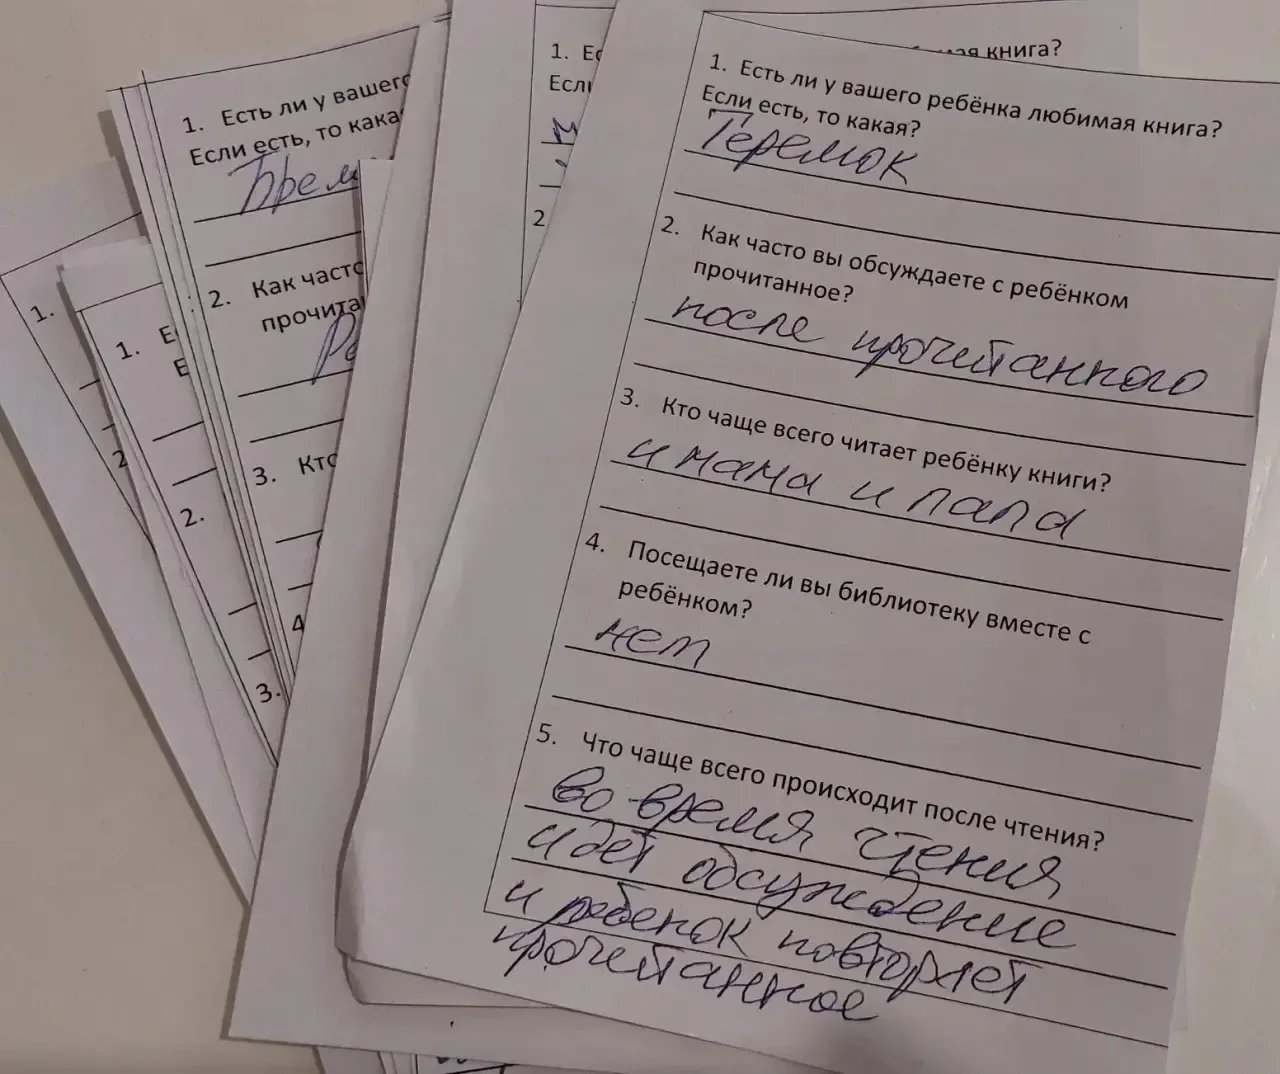 1. Есть ли у вашего
Если есть, то кака
2. Как часто
прочита
3. Кто
4
1.
2
1. Е
Е
2.
3.
1. Ес
Если
2.
мая книга?
1. Есть ли у вашего ребёнка любимая книга?
Если есть, то какая?
Теремок
2. Как часто вы обсуждаете с ребёнком
прочитанное?
после прочитанного
3. Кто чаще всего читает ребёнку книги?
и мама и папа
4. Посещаете ли вы библиотеку вместе с
ребёнком?
нет
5. Что чаще всего происходит после чтения?
во время чтения
идёт обсуждение
и ребенок повторяет
прочитанное